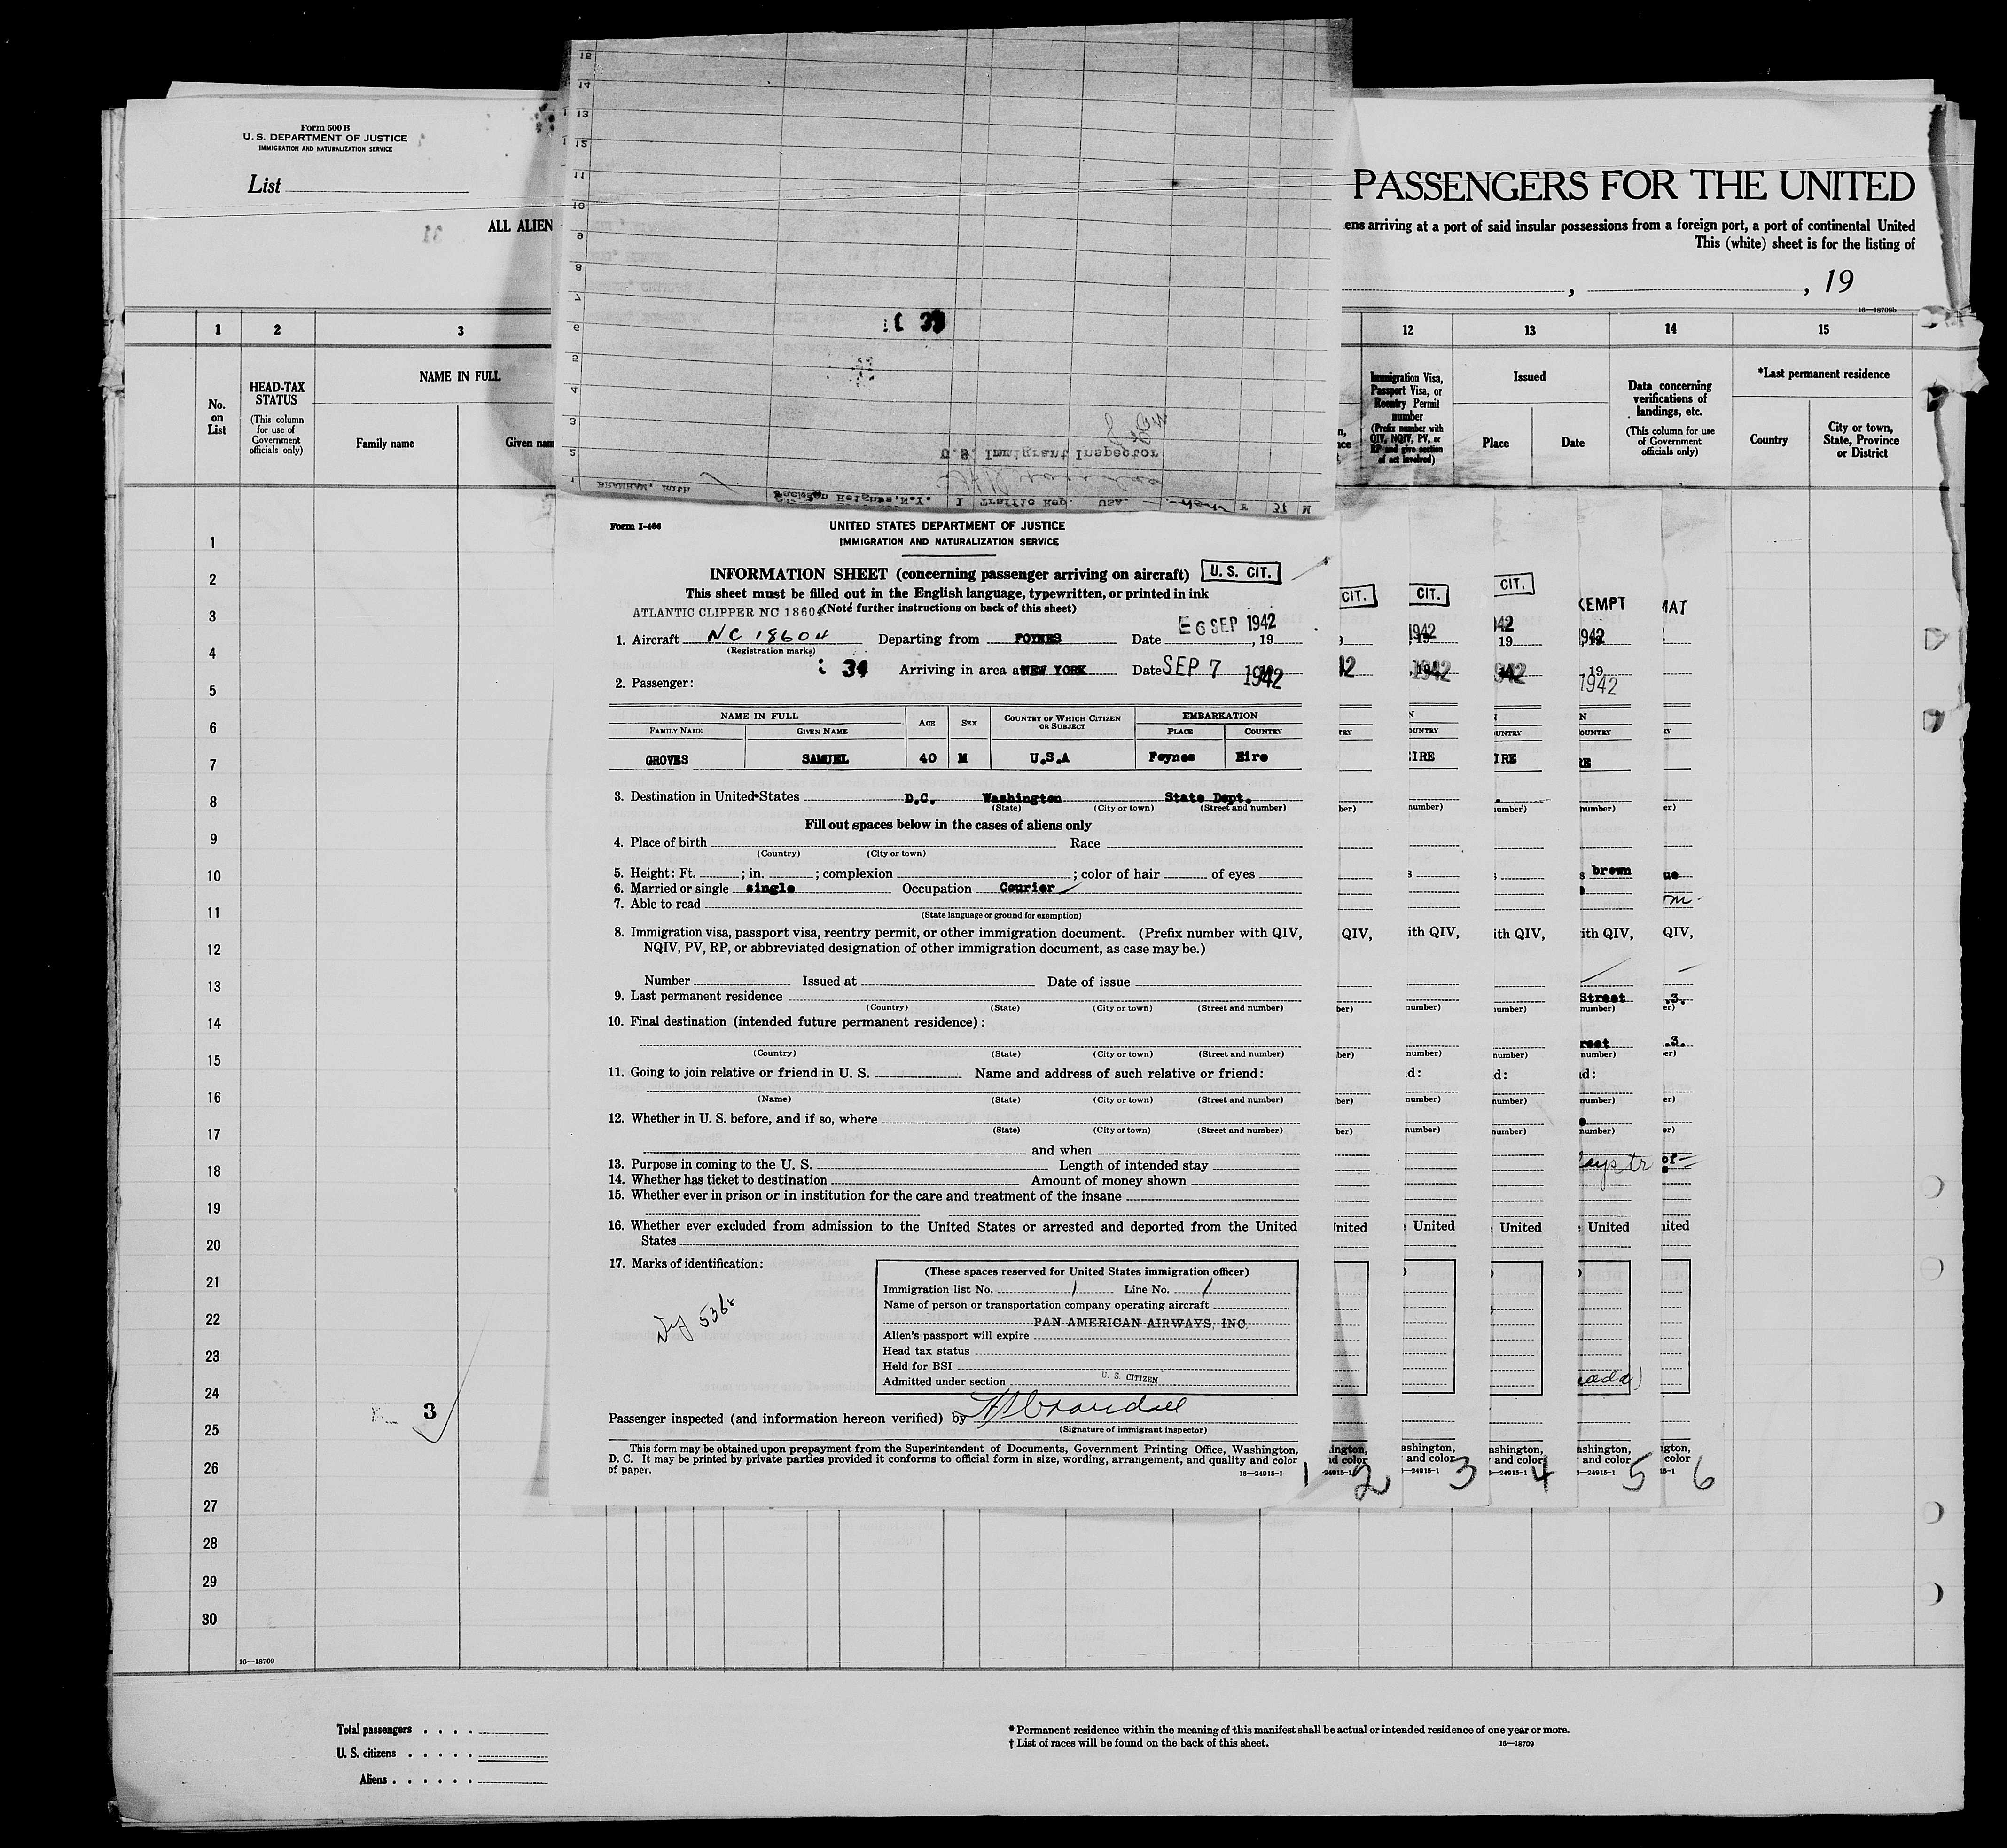 Form 500 B
U. S. DEPARTMENT OF JUSTICE
IMMIGRATION AND NATURALIZATION SERVICE
List
ALL ALIEN
PASSENGERS FOR THE UNITED
ens arriving at a port of said insular possessions from a foreign port, a port of continental United
This (white) sheet is for the listing of
, , 19
16—18709b
1 2 3 12 13 14 15
No. on List
HEAD-TAX STATUS
(This column for use of Government officials only)
NAME IN FULL
Family name
Given nam
Immigration Visa, Passport Visa, or Reentry Permit number
(Prefix number with QIV, NQIV, PV, or RP and give section of act involved)
Issued
Place
Date
Data concerning verifications of landings, etc.
(This column for use of Government officials only)
*Last permanent residence
Country
City or town, State, Province or District
15
14
13
12
11
10
9
8
7
6
5
4
3
2
39
U.S. Immigrant Inspector
BRANHAM, Ruth Jackson Heights, N.Y. 1 Traffic Rep. USA. F 37 M
Form I-466
UNITED STATES DEPARTMENT OF JUSTICE
IMMIGRATION AND NATURALIZATION SERVICE
INFORMATION SHEET (concerning passenger arriving on aircraft) U. S. CIT.
This sheet must be filled out in the English language, typewritten, or printed in ink
ATLANTIC CLIPPER NC 18604 (Note further instructions on back of this sheet)
1. Aircraft NC 18604 Departing from FOYNES Date 6 SEP 1942, 19
(Registration marks)
34 Arriving in area at NEW YORK Date SEP 7 1942
2. Passenger:
NAME IN FULL AGE SEX COUNTRY OF WHICH CITIZEN OR SUBJECT EMBARKATION
FAMILY NAME GIVEN NAME PLACE COUNTRY
GROVES SAMUEL 40 M U.S.A Foynes Eire
3. Destination in United States D.C. Washington State Dept.
(State) (City or town) (Street and number)
Fill out spaces below in the cases of aliens only
4. Place of birth Race
(Country) (City or town)
5. Height: Ft. ; in. ; complexion ; color of hair of eyes
6. Married or single single Occupation Courier
7. Able to read
(State language or ground for exemption)
8. Immigration visa, passport visa, reentry permit, or other immigration document. (Prefix number with QIV,
NQIV, PV, RP, or abbreviated designation of other immigration document, as case may be.)
Number Issued at Date of issue
9. Last permanent residence
(Country) (State) (City or town) (Street and number)
10. Final destination (intended future permanent residence):
(Country) (State) (City or town) (Street and number)
11. Going to join relative or friend in U. S. Name and address of such relative or friend:
(Name) (State) (City or town) (Street and number)
12. Whether in U. S. before, and if so, where
(State) (City or town) (Street and number)
and when
13. Purpose in coming to the U. S. Length of intended stay
14. Whether has ticket to destination Amount of money shown
15. Whether ever in prison or in institution for the care and treatment of the insane
16. Whether ever excluded from admission to the United States or arrested and deported from the United
States
17. Marks of identification:
(These spaces reserved for United States immigration officer)
Immigration list No. 1 Line No. 1
Name of person or transportation company operating aircraft
PAN AMERICAN AIRWAYS, INC.
Alien's passport will expire
Head tax status
Held for BSI
Admitted under section U. S. CITIZEN
Passenger inspected (and information hereon verified) by
(Signature of immigrant inspector)
This form may be obtained upon prepayment from the Superintendent of Documents, Government Printing Office, Washington,
D. C. It may be printed by private parties provided it conforms to official form in size, wording, arrangement, and quality and color
of paper.
16—24915-1
1 2 3 4 5 6
CIT. CIT. CIT. XEMPT MAT
1942 1942 1942 1942
brown
Street .3.
1
2
3
4
5
6
7
8
9
10
11
12
13
14
15
16
17
18
19
20
21
22
23
24
25
26
27
28
29
30
3
16—18709
Total passengers . . . .
U. S. citizens . . . . .
Aliens . . . . . .
* Permanent residence within the meaning of this manifest shall be actual or intended residence of one year or more.
† List of races will be found on the back of this sheet.
16—18709